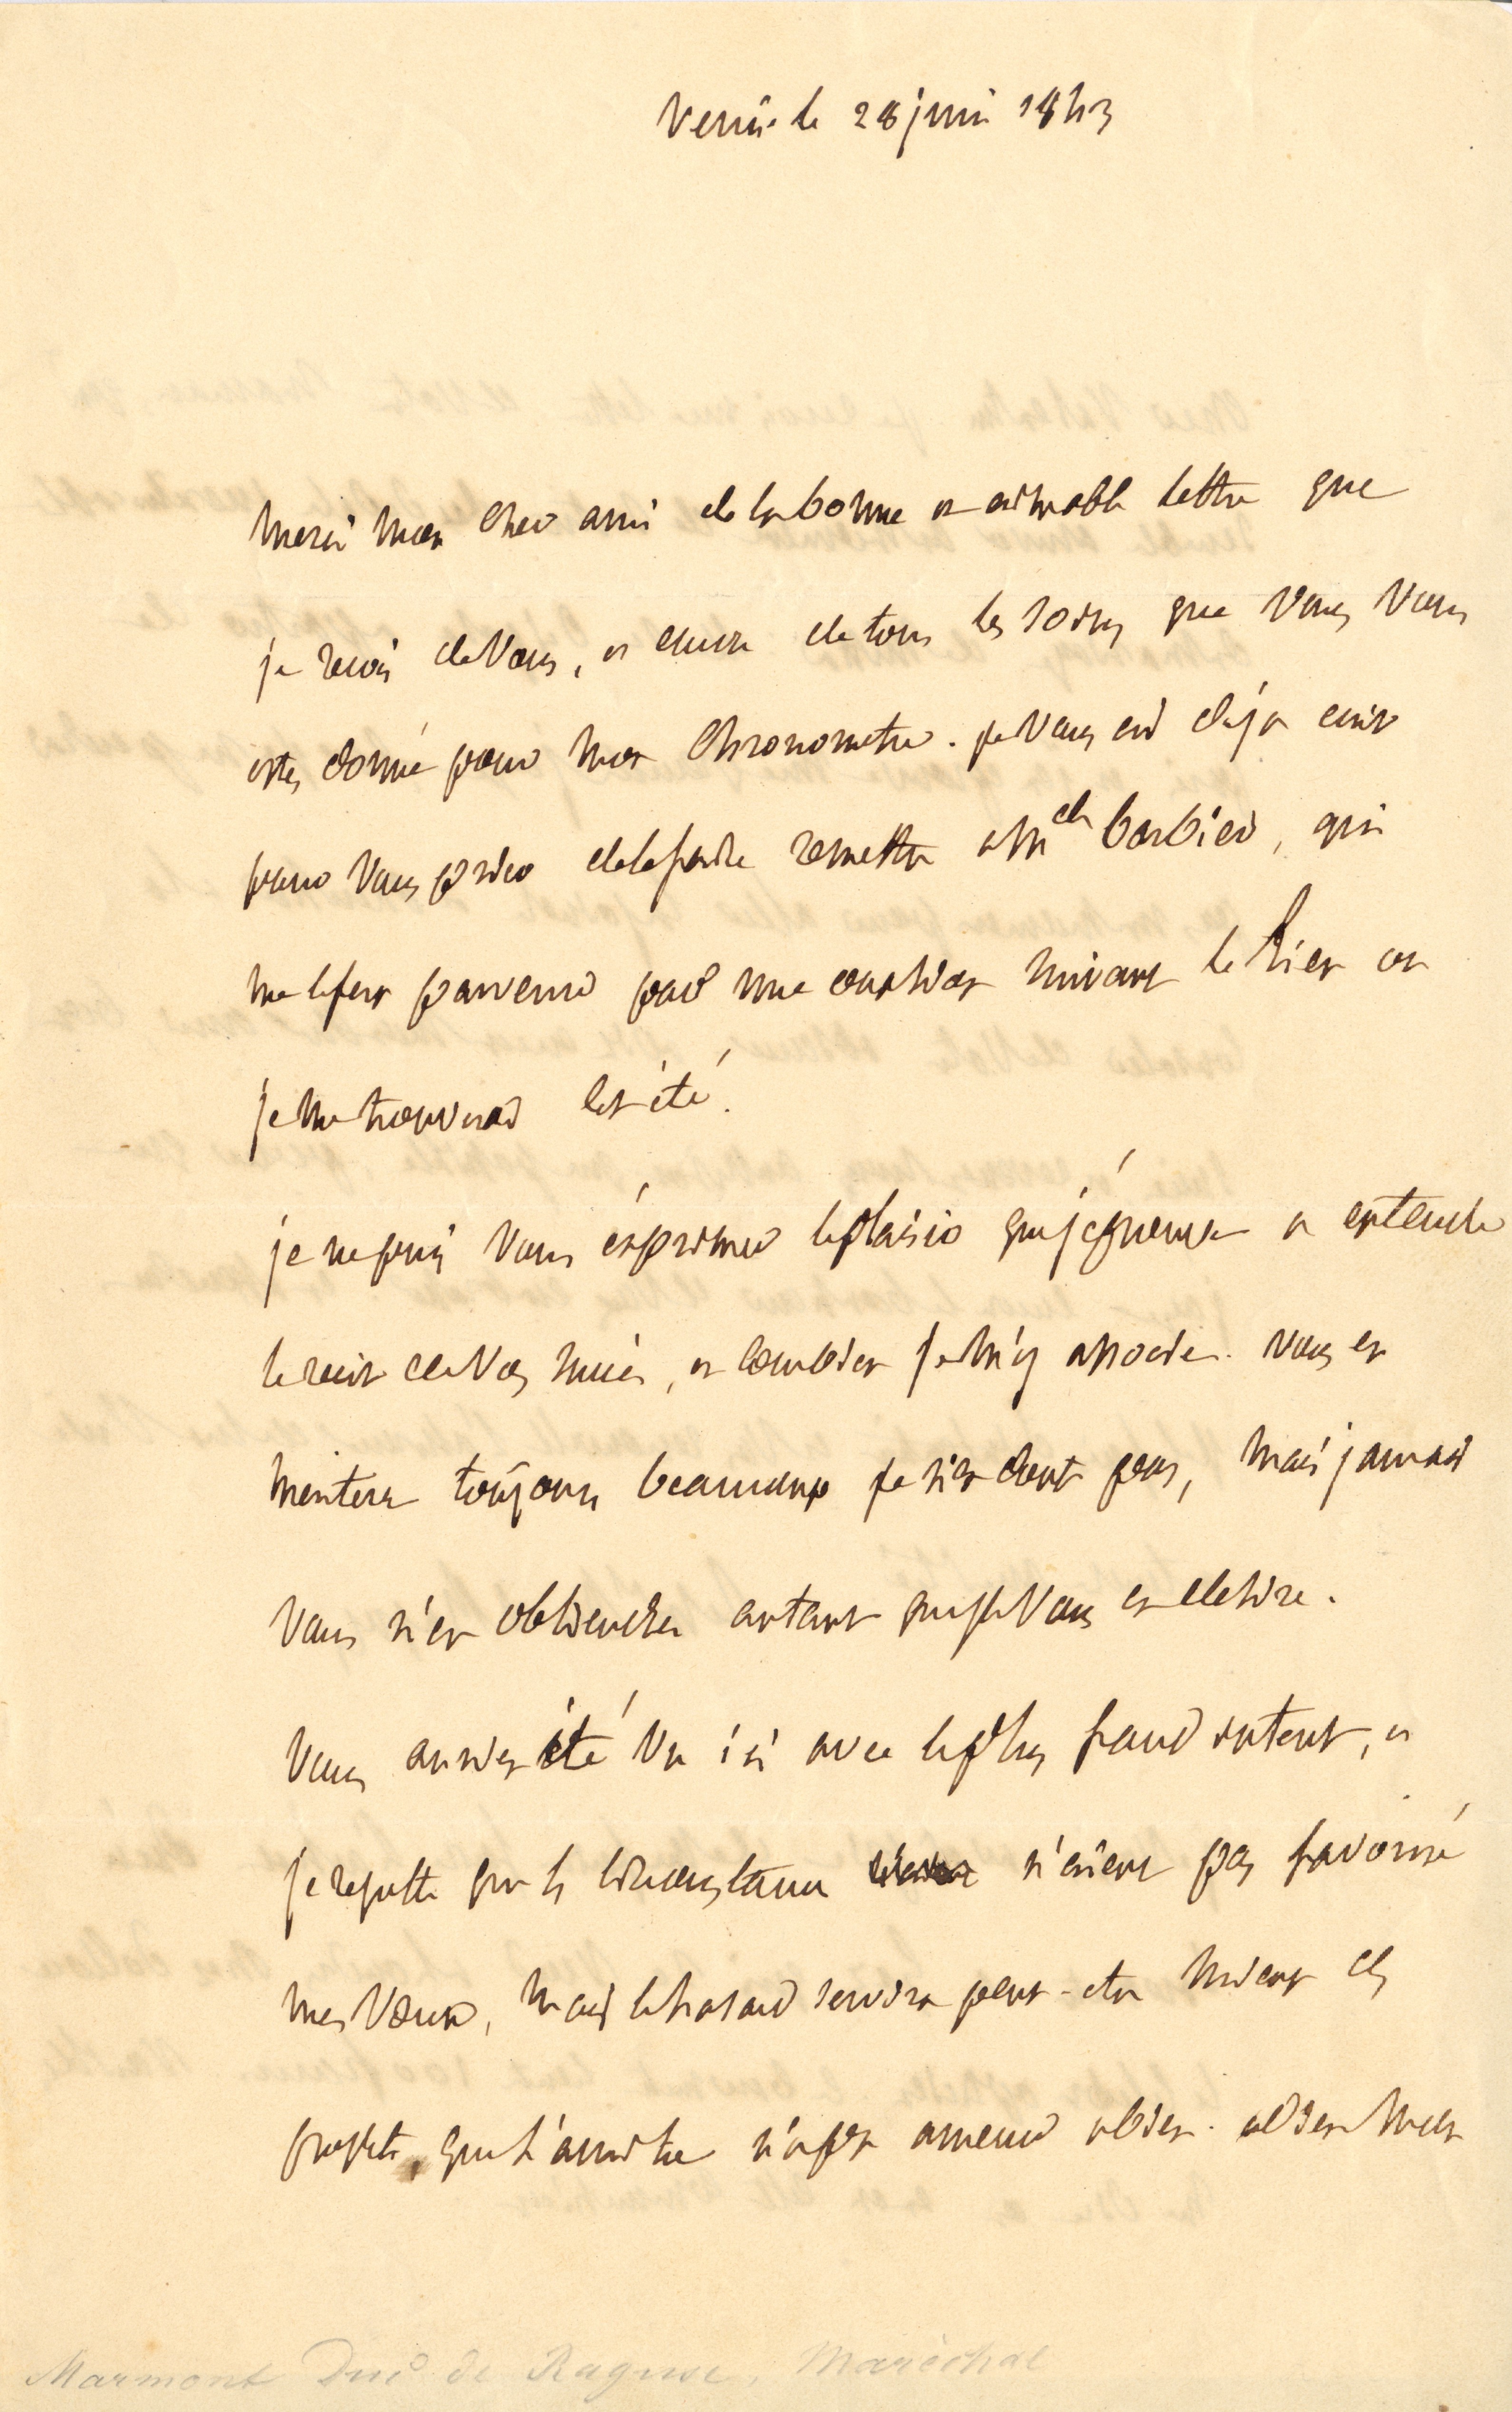 Venise le 28 juin 1843
merci mon cher ami de la bonne et aimable lettre que
je reçois de vous, et encore de tous les soins que vous vous
etes donné pour mon chronometre. je vous ai deja ecrit
pour vous prier de le faire remettre a Mde barbier, qui
me le fera parvenir par une occasion suivant le lieu ou
je me trouverai cet été.
je ne puis vous éxprimer le plaisir que j'éprouve a entendre
le recit de vos succès, et combien je m'y associe. vous en
meriterez toujours beaucoup je n'en doute pas, mais jamais
vous n'en obtiendrez autant que je vous en desire.
vous auriez été vu ici avec le plus grand interet, et
je regrette que les circonstances n'aient pas favorisé
mes voeux, mais le hasard servira peut-etre mieux des
projets que l'amitié n'a pu amener a bien. adieu mon
Marmont Duc de Raguse, Maréchal